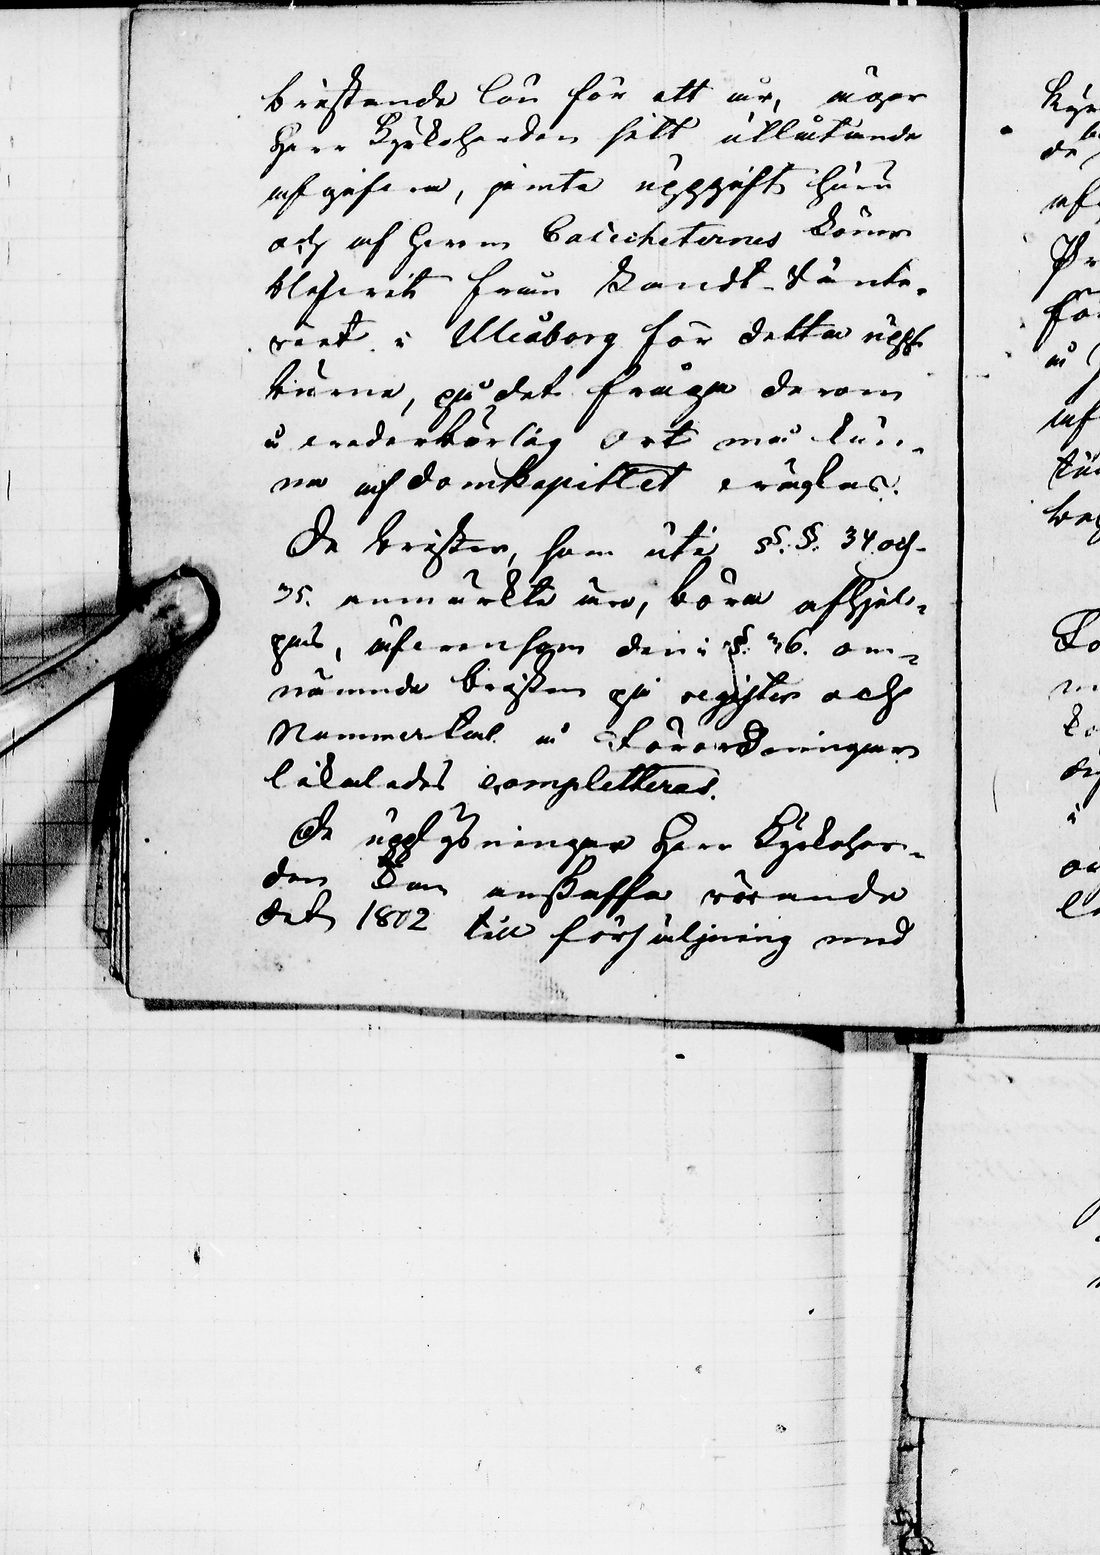 bristande lön för ett år, äger
Herr Kyrkoherden sitt utlåtande
afgifva, jemte uppgift huru
och af hvem Catecheternes löner
blifvit från Landt-Ränte-
riet i Uleåborg för detta upp-
burne, på det fråga derom
å vederbörlig Ort må kun-
na af domkapittlet väckas.
De brister, som uti §.§. 34. och
35. anmärkte äro, böra afhjel-
pas, äfvensom den i §. 36. om-
nämnde bristen på register och
Nummertal å Förordningar
likaledes completteras.
De upplysningar Herr Kyrkoher-
den kan anskaffa rörande
det 1802 till försäljning med